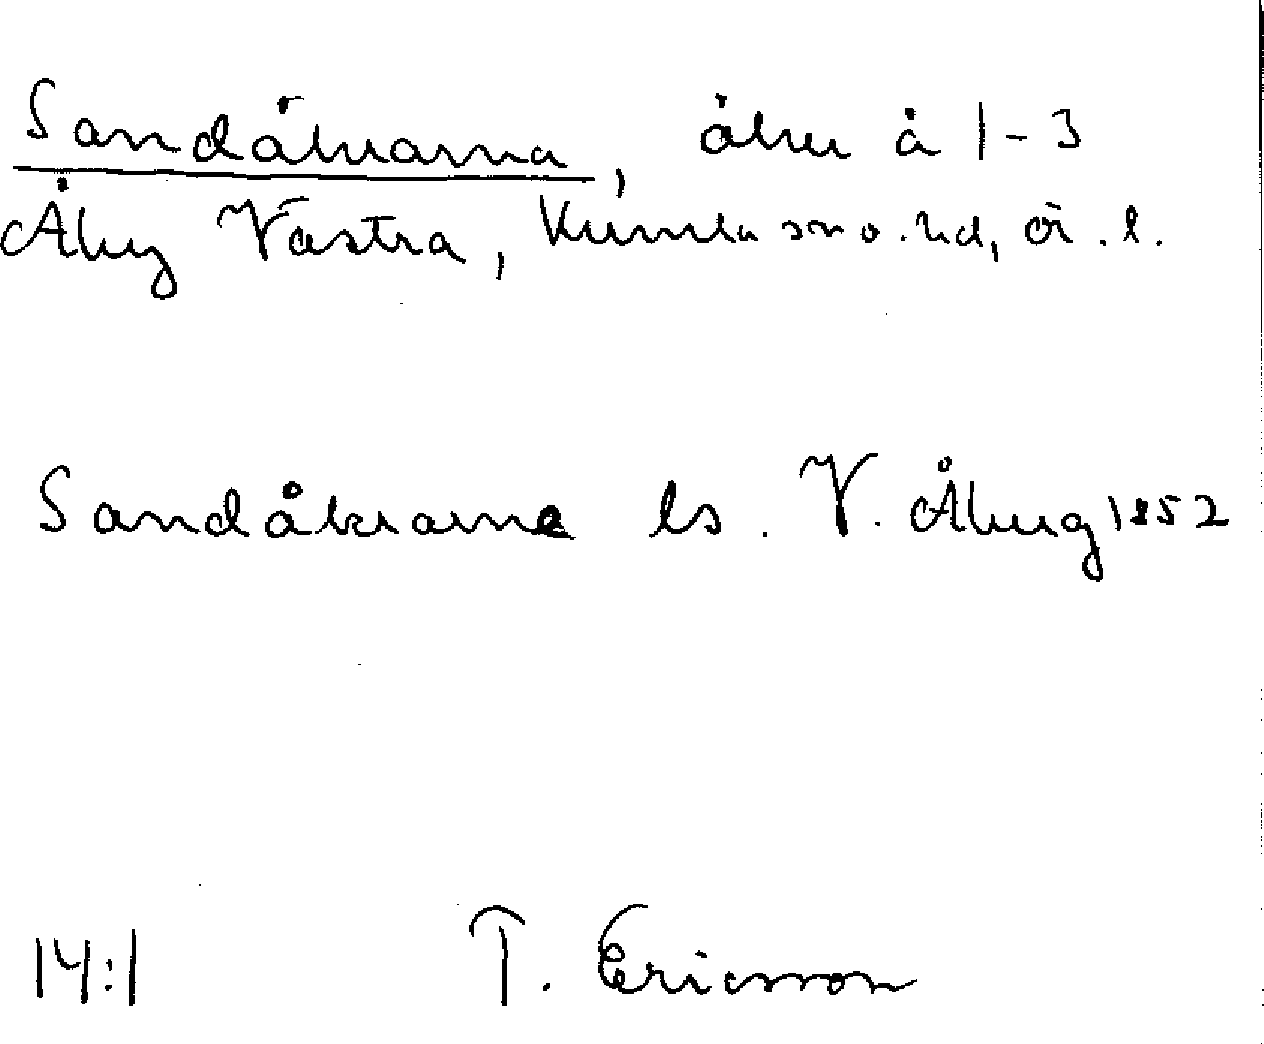 Sandåkrarna, åkrar å 1-3
Åby Västra, Kumla sn o. hd, Ög. l.
Sandåkrarne ls. V. Åby 1852
14:1 T. Ericsson